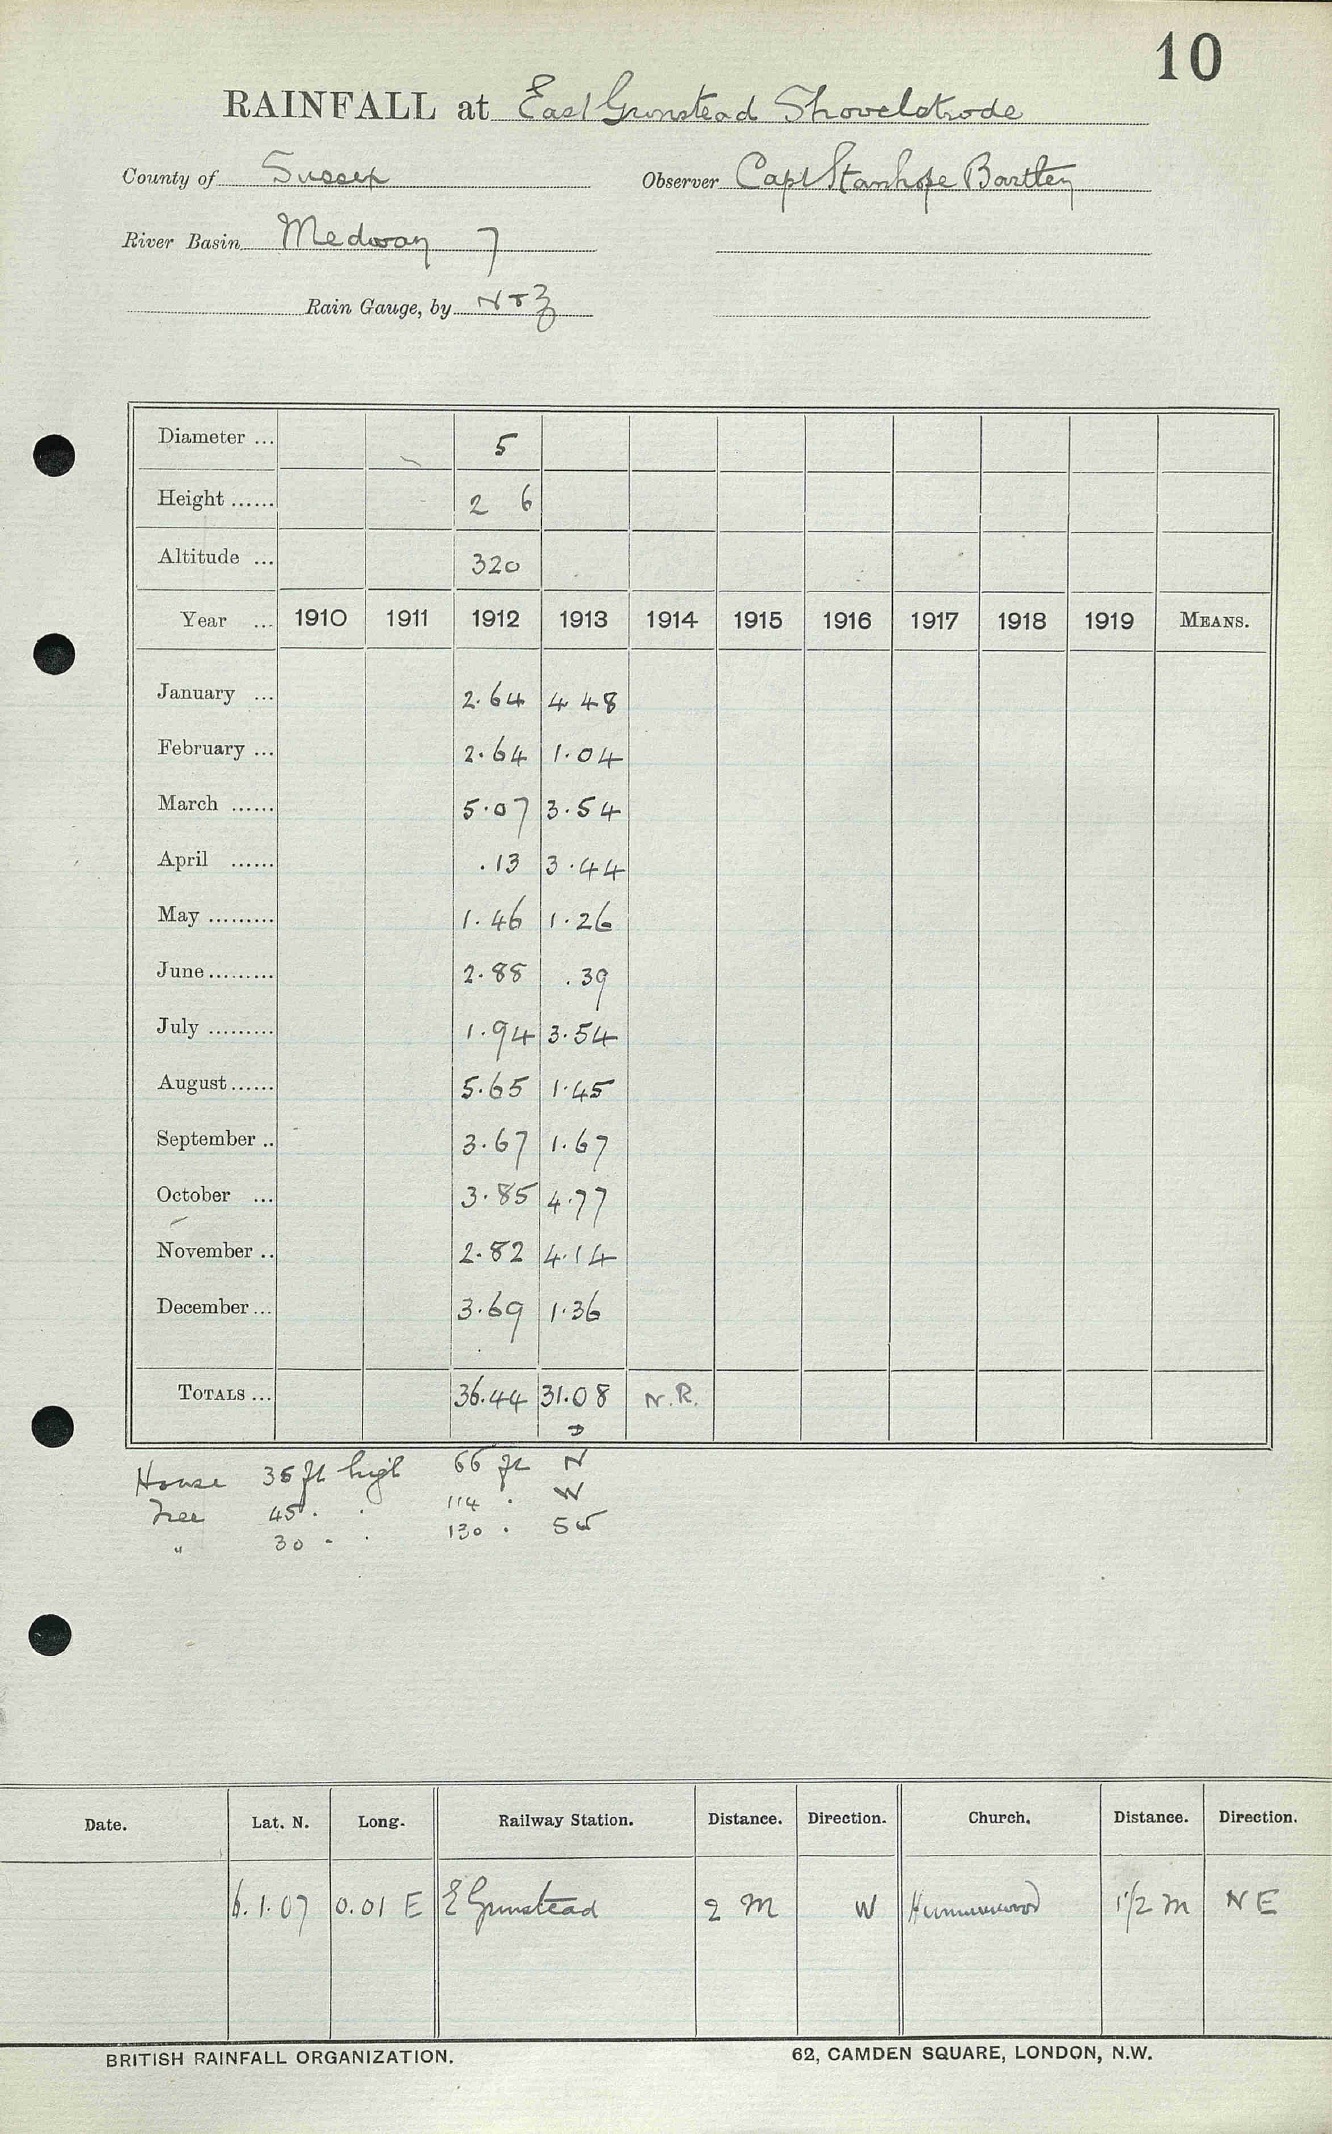 10
RAINFALL at East Grinstead Shovelstrode
County of Sussex Observer Capt Stanhope Bartley
River Basin Medway 7
Rain Gauge, by N & Z
Diameter ... 5
Height ...... 2 6
Altitude ... 320
Year ... 1910 1911 1912 1913 1914 1915 1916 1917 1918 1919 MEANS.
January ... 2.64 4 48
February ... 2.64 1.04
March ...... 5.07 3.54
April ...... .13 3.44
May ......... 1.46 1.26
June ......... 2.88 .39
July ......... 1.94 3.54
August ...... 5.65 1.45
September .. 3.67 1.67
October ... 3.85 4.77
November .. 2.82 4.14
December ... 3.69 1.36
TOTALS ... 36.44 31.08 N.R.
House 35 ft high 66 ft N
Tree 45 . . 114 . W
" 30 . . 130 . SW
Date. Lat. N. Long. Railway Station. Distance. Direction. Church. Distance. Direction.
6.1.07 0.01 E E Grinstead 2 M W Hammerwood 1 1/2 M N E
BRITISH RAINFALL ORGANIZATION. 62, CAMDEN SQUARE, LONDON, N.W.